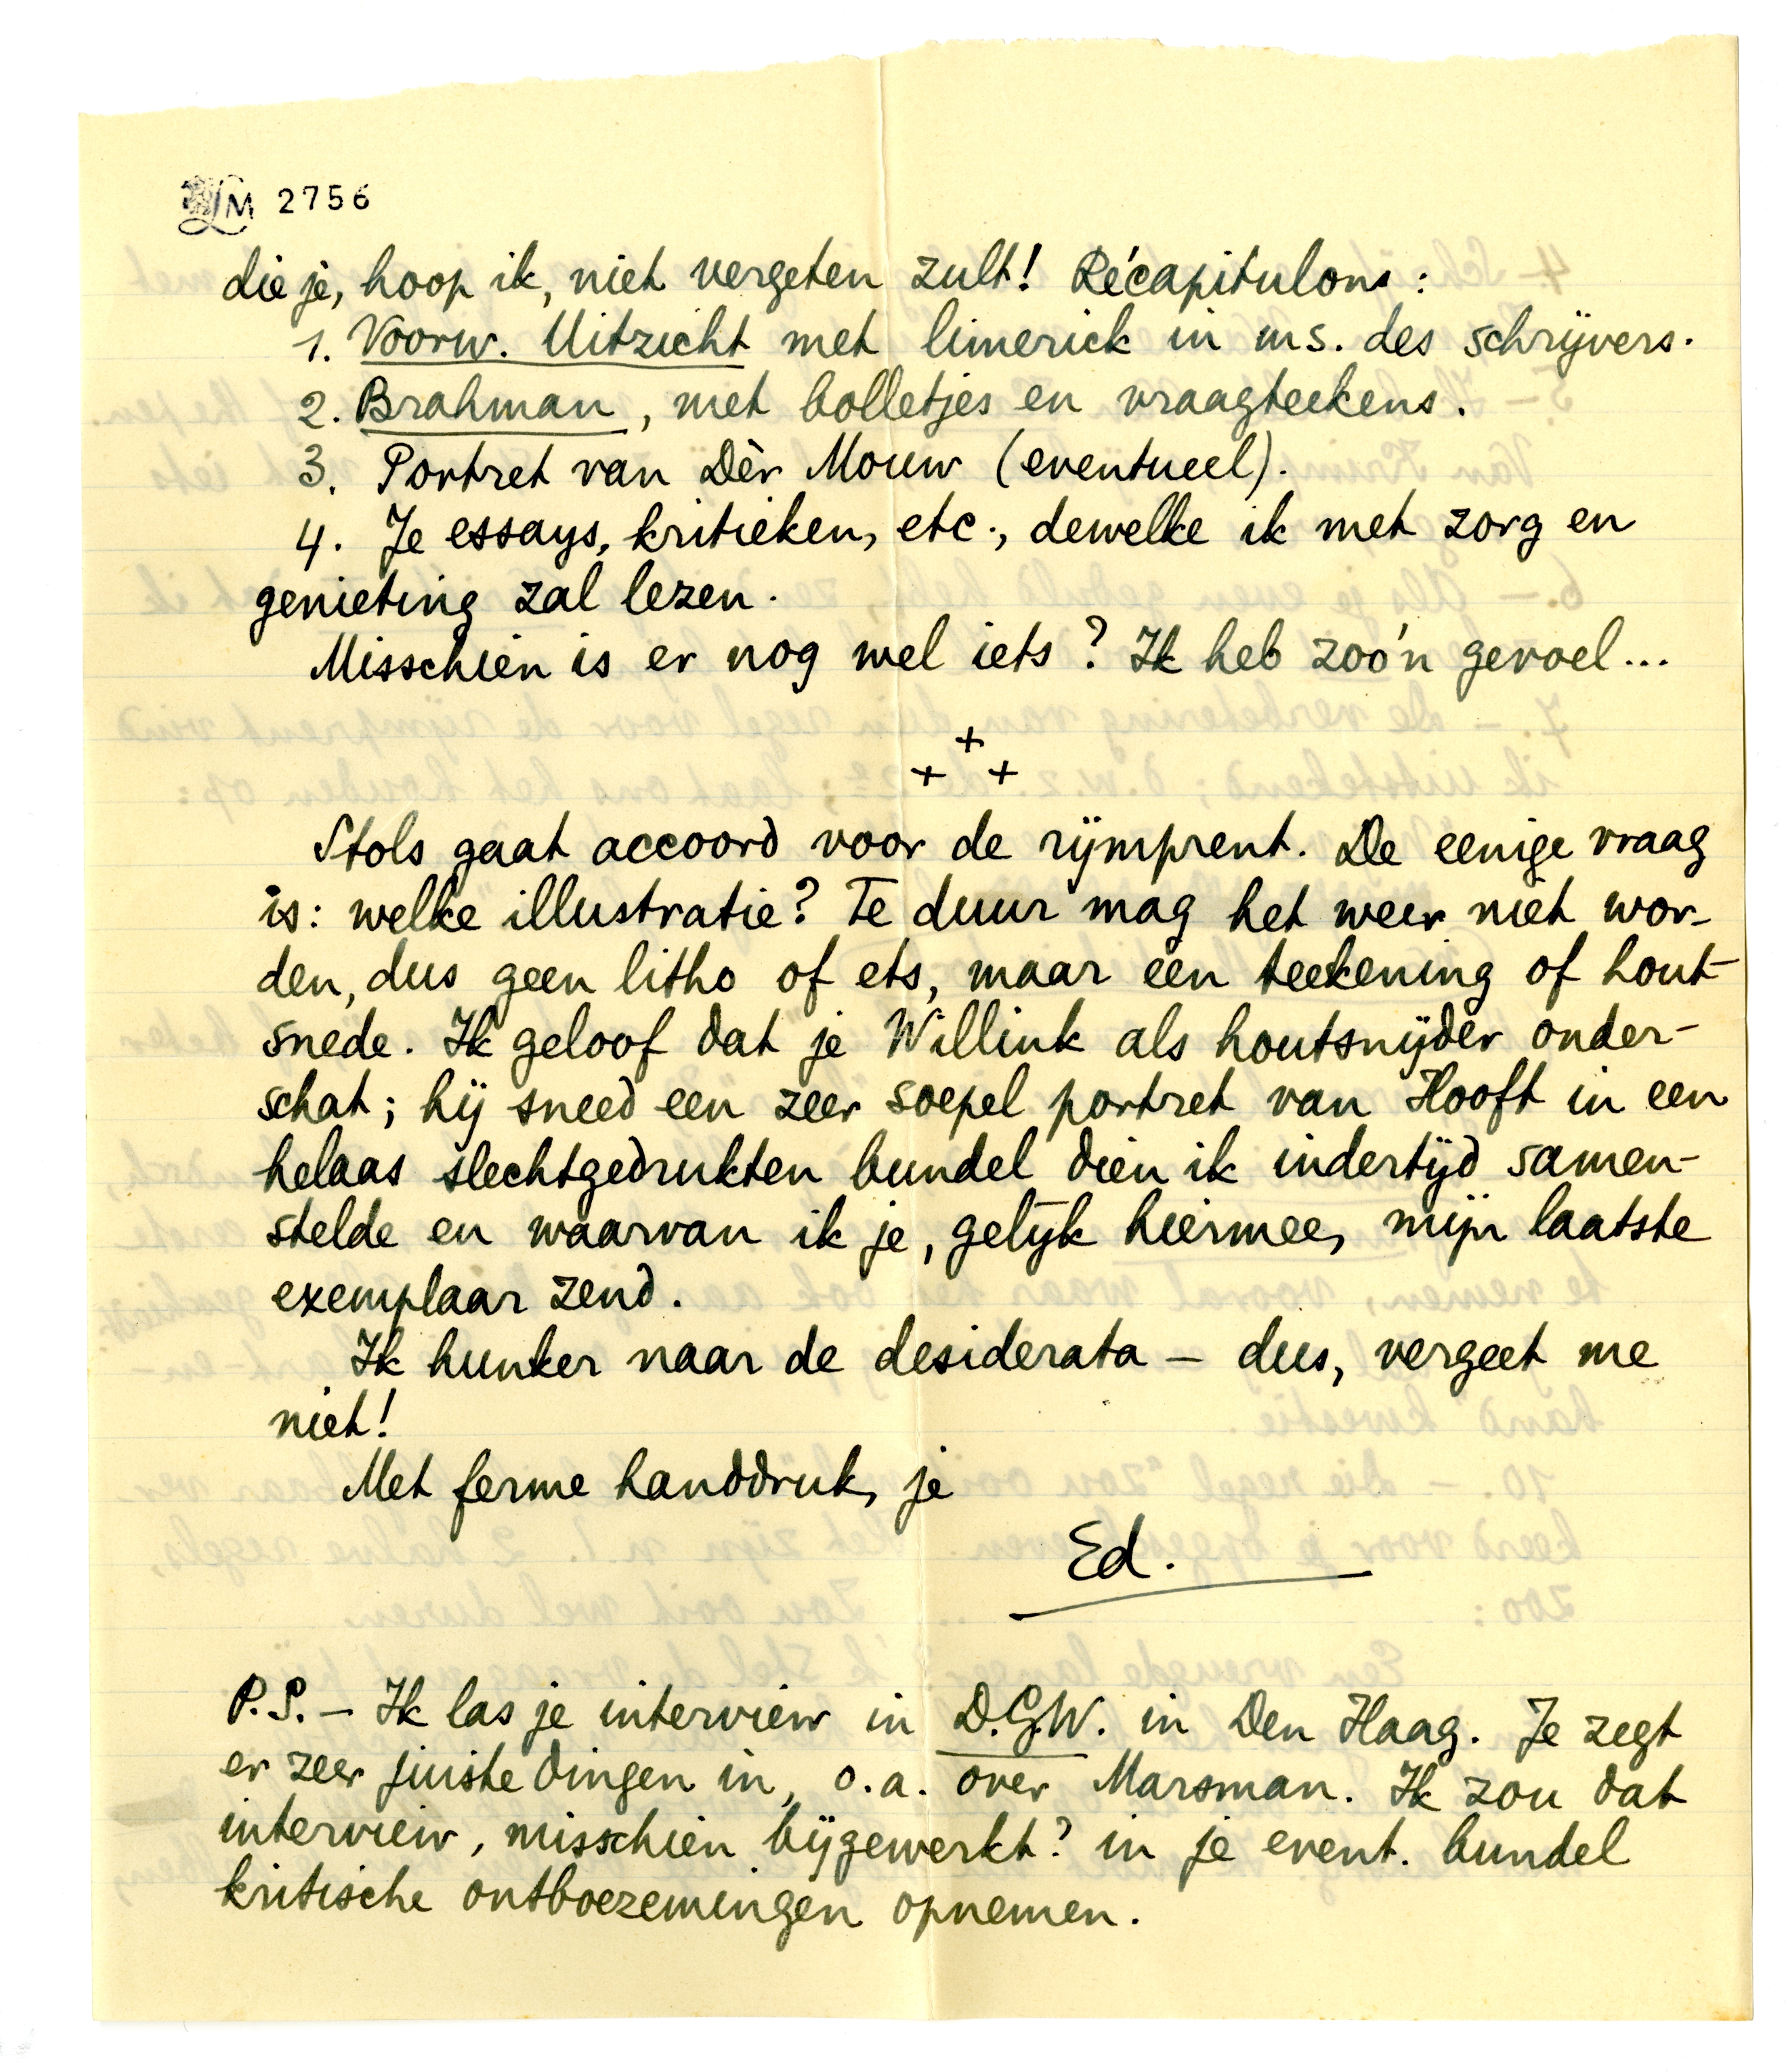 LM 2756
die je, hoop ik, niet vergeten zult! Récapitulons:
1. Voorw. Uitzicht met limerick in ms. des schrijvers.
2. Brahman, met bolletjes en vraagteekens.
3. Portret van Dèr Mouw (eventueel).
4. Je essays, kritieken, etc., dewelke ik met zorg en
genieting zal lezen.
Misschien is er nog wel iets? Ik heb zoo'n gevoel...
+
+ +
Stols gaat accoord voor de rijmprent. De eenige vraag
is: welke illustratie? Te duur mag het weer niet wor-
den, dus geen litho of ets, maar een teekening of hout-
snede. Ik geloof dat je Willink als houtsnijder onder-
schat; hij sneed een zeer soepel portret van Hooft in een
helaas slechtgedrukten bundel dien ik indertijd samen-
stelde en waarvan ik je, gelijk hiermee, mijn laatste
exemplaar zend.
Ik hunker naar de desiderata – dus, vergeet me
niet!
Met ferme handdruk, je
Ed.
P.S. – Ik las je interview in D.G.W. in Den Haag. Je zegt
er zeer juiste dingen in, o.a. over Marsman. Ik zou dat
interview, misschien bijgewerkt? in je event. bundel
kritische ontboezemingen opnemen.